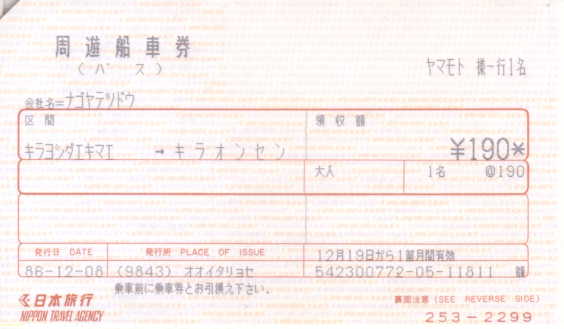 周遊船車券
(バス)
ヤマモト 様一行1名
会社名=ナゴヤテツドウ
区間
領収額
キラヨシダエキマエ → キラオンセン
¥190*
大人 1名 @190
発行日 DATE 発行所 PLACE OF ISSUE
12月19日から1箇月間有効
86-12-08 (9843) オオイタリヨセ
542300772-05-11811
乗車前に乗車券とお引換え下さい。
日本旅行
NIPPON TRAVEL AGENCY
裏面注意 (SEE REVERSE SIDE)
253-2299